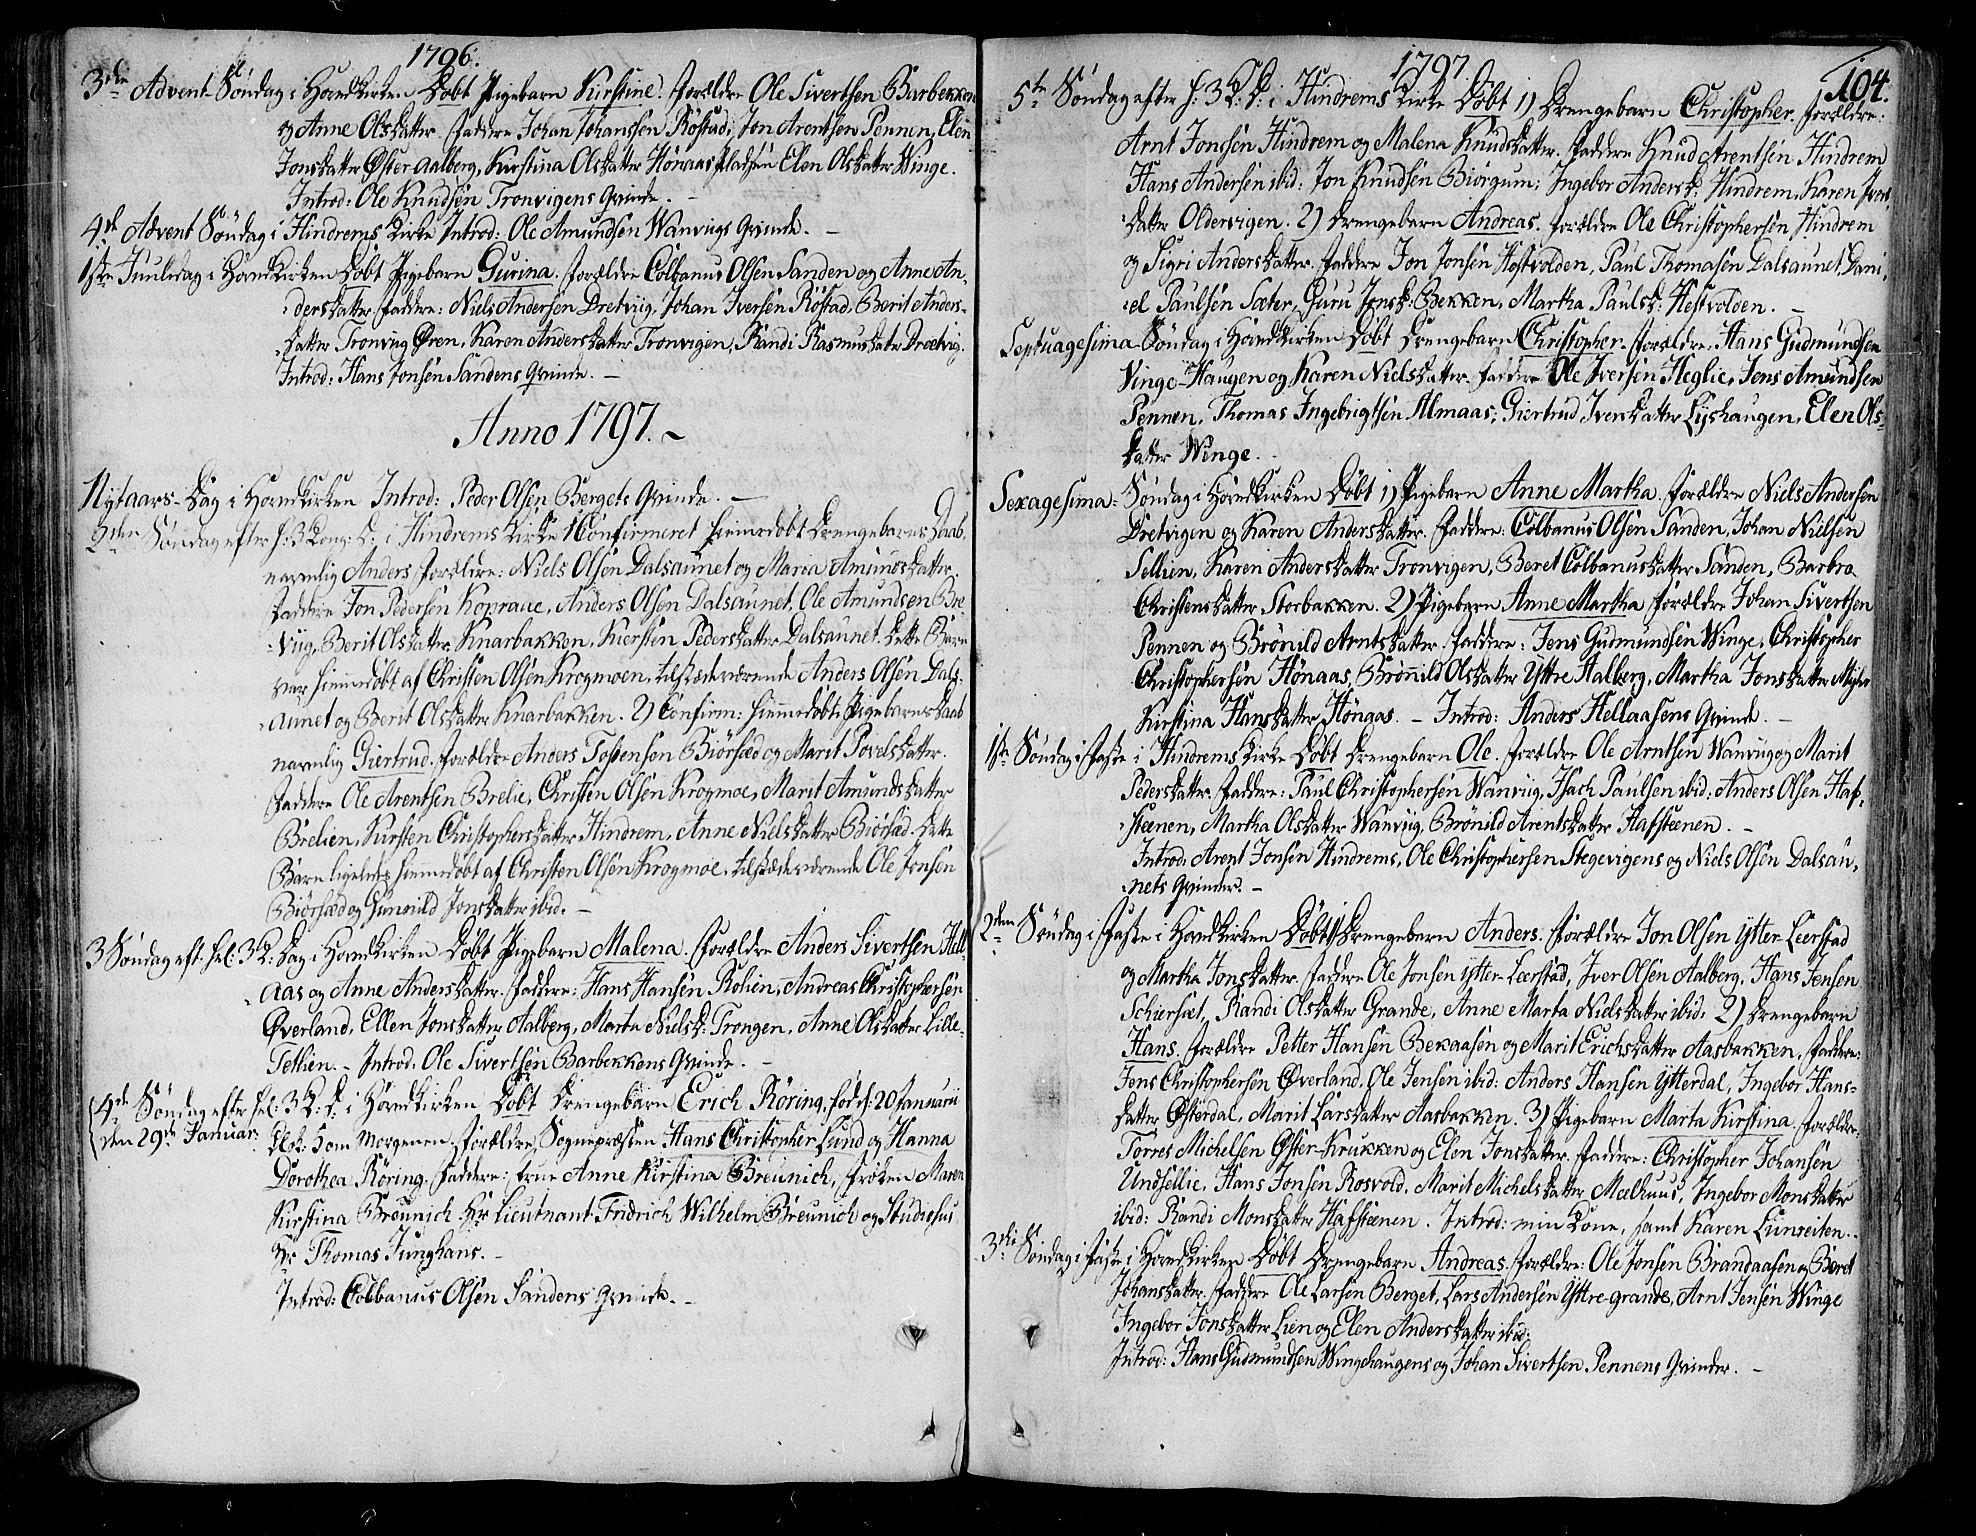 1796.
3die Advent Søndag i Hovedkirken Døbt Pigebarn Kirstine. Forældre Ole Sivertsen Barbekken
og Anne Olsdatter. Faddere Johan Johansen Røstad, Jon Arentsen Pennen, Elen
Jonsdatter Øster Aalberg, Kirstina Olsdatter Hønaaspladsen Elen Olsdatter Winge.
Introd: Ole Knudsen Tronvigens Qvinde.
4de Advent Søndag i Hindrems Kirke Introd: Ole Amundsen Wanviigs Qvinde. –
1ste Juuledag i Hovedkirken Døbt Pigebarn Gurina. Forældre Colbanus Olsen Sanden og Anne An-
dersdatter. Faddere: Niels Andersen Dretviig, Johan Iversen Røstad, Berit Anders-
datter Tronviig Øren, Karen Andersdatter Tronvigen, Randi Rasmusdater Drætvig.
Introd: Hans Jonsen Sandens Qvinde. –
Anno 1797. ~
Nytaars-Dag i Hovedkirken Introd: Peder Olsen Bergets Qvinde. –
2den Søndag efter H: 3 Kong: D: i Hindrems Kirke 1 Confirmeret hiemmedøbt Drengebarns Daab,
navnlig Anders Forældre: Niels Olsen Dalsaunet og Maria Amundsdatter.
Faddere Jon Pedersen Kopraae, Anders Olsen Dalsaunet, Ole Amundsen Bre
viig, Berit Olsdatter Knarbakken, Kiersten Pedersdatter Dalsaunet. Dette Barn
var hiemmedøbt af Christen Olsen Krogmoen, tilstædeværende Anders Olsen Dals-
aunet og Berit Olsdatter Knarbakken. 2) Confirm: hiemmedøbte Pigebarns Daab
navnlig Giertrud. Forældre Anders Tostensen Biørsæd og Marit Povelsdatter.
Faddere Ole Arentsen Brelie, Christen Olsen Krogmoe, Marit Amundsdatter
Brelien, Kirsten Christophersdatter Hindrem, Anne Nielsdatter Biørsæd. Dette
Barn ligeledes hiemmedøbt af Christen Olsen Krogmoe, tilstædeværende Ole Jonsen
Biørsæd og Gunnild Jonsdatter ibid. –
3 Søndag eft. Hel: 3 K: Dag i Hovedkirken Døbt Pigebarn Malena. Forældre Anders Sivertsen Hell-
aas og Anne Andersdatter. Faddere: Hans Hansen Rølien, Andreas Christophersen
Øverland, Ellen Jonsdatter Aalberg, Marta Nielsd: Trongen, Anne Olsdatter Lille-
Tethien. – Introd: Ole Sivertsen Barbekkens Qvinde. –
4de Søndag efter Hel: 3 K: D: i Hovedkirken Døbt Drengebarn Erich Röring, fød d: 20 Januarii
den 29de Januar: Kl: 5 om Morgenen. Forældre Sognepræsten Hans Christopher Lund og Hanna
Dorothea Röring. Faddere: Frue Anne Kirstina Breunich, Frøken Maren
Kirstina Breunich Hr Lieutnant Fridrich Wilhelm Breunich og Studiosus
Hr Thomas Junghans. –
Introd: Colbanus Olsen Sandens Qvinde. –
1797.
104.
5te Søndag efter H: 3 K: D: i Hindrems Kirke Døbt 1) Drengebarn Christopher. Forældre:
Arnt Jonsen Hindrem og Malena Knudsdatter. Faddere Knud Arentsen Hindrem
Hans Andersen ibid: Jon Knudsen Biørgum; Ingebor Andersd: Hindrem, Karen Iver-
datter Oldervigen. 2) Drengebarn Andreas. Forældre Ole Christophersen Hindrem
og Sigri Andersdatter. Faddere Jon Jonsen Høstvolden, Paul Thomasen Dalsaunet, Dani
el Paulsen Sæter, Guru Jonsd: Bekken, Martha Paulsd: Hestvolden. –
Septuagesima Søndag i Hovedkirken Døbt Drengebarn Christopher. Forældre. Hans Gudmundsen
Vinge-Haugen og Karen Nielsdatter. Faddere Ole Iversen Heglie, Jens Amundsen
Pennen, Thomas Ingebrigtsen Almaas, Giertrud Iversdatter Lyshaugen, Elen Ols-
datter Winge. –
Sexagesima: Søndag i Hovedkirken Døbt 1) Pigebarn Anne Martha. Forældre Niels Andersen
Dretvigen og Karen Andersdatter. Faddere: Colbanus Olsen Sanden, Johan Nielsen
Sellien, Karen Andersdatter Tronvigen, Beret Colbanusdatter Sanden, Barbro
Christensdatter Storbakken. 2) Pigebarn Anne Martha Forældre Johan Sivertsen
Pennen og Brønild Arntsdatter. Faddere: Jens Gudmundsen Winge, Christopher
Christophersen Hönaas, Brønild Olsdatter Yttre Aalberg, Martha Jonsdatter
Kirstina Hansdatter Höngas. – Introd: Anders Hellaasens Qvinde. –
1ste Søndag i Faste i Hindrems Kirke Døbt Drengebarn Ole. Forældre Ole Arntsen Wanviig og Marit
Pedersdatter. Faddere: Paul Christophersen Wanviig, Isach Paulsen ibid: Anders Olsen Haf-
steenen, Martha Olsdatter Wanviig, Brønild Arentsdatter Hafsteenen. –
Introd. Arent Jonsen Hindrems, Ole Christophersen Stegevigens og Niels Olsen Dalsau-
nets Qvinder. –
2den Søndag i Faste i Hovedkirken Døbt 1) Drengebarn Anders. Forældre Jon Olsen Ytter Leerstad
og Martha Jonsdatter. Faddere Ole Jonsen Ytter Leerstad, Iver Olsen Aalberg, Hans Jensen
Schiersæt, Randi Olsdatter Grande, Anne Marta Nielsdatter ibid: 2) Drengebarn
Hans. Forældre Petter Hansen Bekaasen og Marit Erichsdatter Aasbakken. Faddere:
Jens Christophersen Øverland, Ole Jensen ibid: Anders Hansen Ytterdal, Ingebor Hans-
datter Østerdal, Marit Larsdatter Aasbakken. 3) Pigebarn Marta Kirstina. Forældre:
Torres Michelsen Øster-Krukken og Elen Jonsdatter. Faddere: Christopher Johansen
Undsellie, Hans Jonsen Rosvold, Marit Michelsdatter Meelhuus, Ingebor Monsdatter
ibid: Randi Monsdatter Hafsteenen. Introd: min Kone, samt Karen Lunseiten.
3die Søndag i Faste i Hovedkirken Døbt Drengebarn Andreas. Forældre: Ole Jonsen Brandaasen og Beret
Johansdatter. Faddere Ole Larsen Berget, Lars Andersen Yttre-grande, Arnt Jensen Winge
Ingebor Jonsdatter Lien og Elen Andersdatter ibid:
Introd: Hans Gudmundsen Wingehaugens og Johan Sivertsen Pennens Qvinder. –